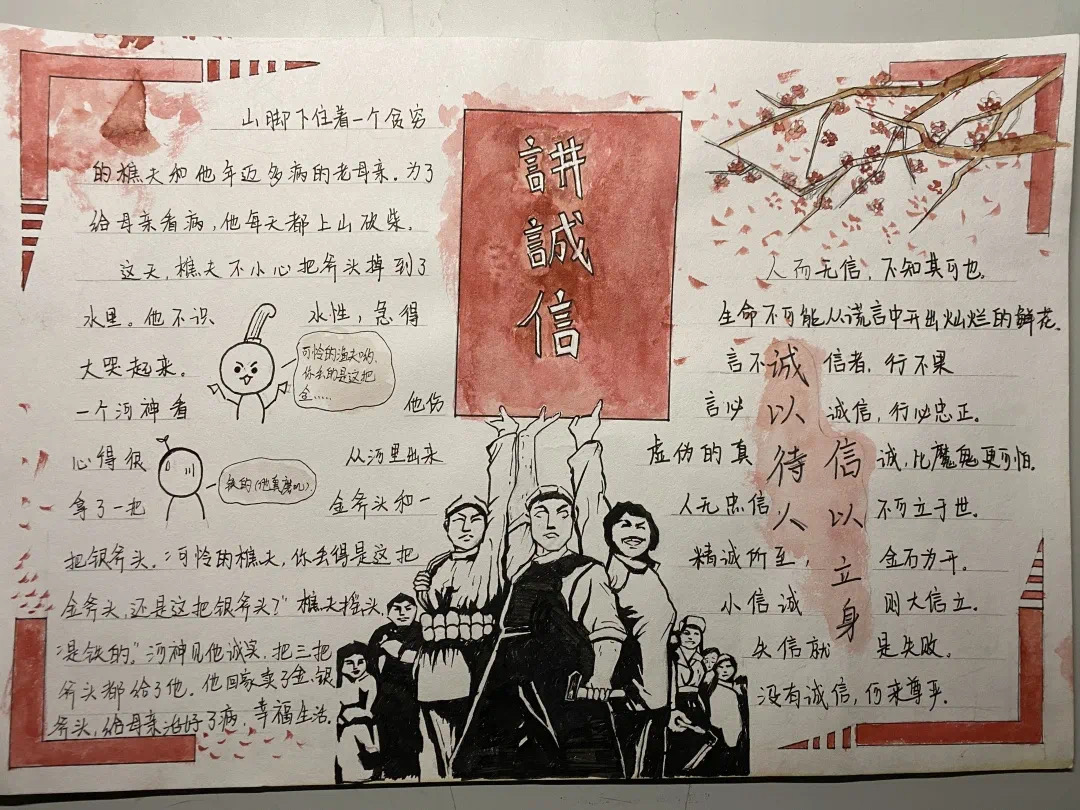 山脚下住着一个贫穷
的樵夫和他年迈多病的老母亲。为了
给母亲看病，他每天都上山砍柴。
这天，樵夫不小心把斧头掉到了
水里。他不识 水性，急得
大哭起来。
一个河神看 他伤
心得很 从河里出来
拿了一把 金斧头和一
把银斧头。“可怜的樵夫，你丢得是这把
金斧头，还是这把银斧头？”樵夫摇头，
“是铁的。”河神见他诚实，把三把
斧头都给了他。他回家卖了金、银
斧头，给母亲治好了病，幸福生活。
可怜的渔夫哟，
你丢的是这把
金……
铁的(他真磨叽)
講
誠
信
人而无信，不知其可也。
生命不可能从谎言中开出灿烂的鲜花。
言不 信者，行不果
言必 诚信，行必忠正。
虚伪的真 诚，比魔鬼更可怕。
人无忠信 不可立于世。
精诚所至， 金石为开。
小信诚 则大信立。
失信就 是失败。
没有诚信，何来尊严。
诚以待人
信以立身